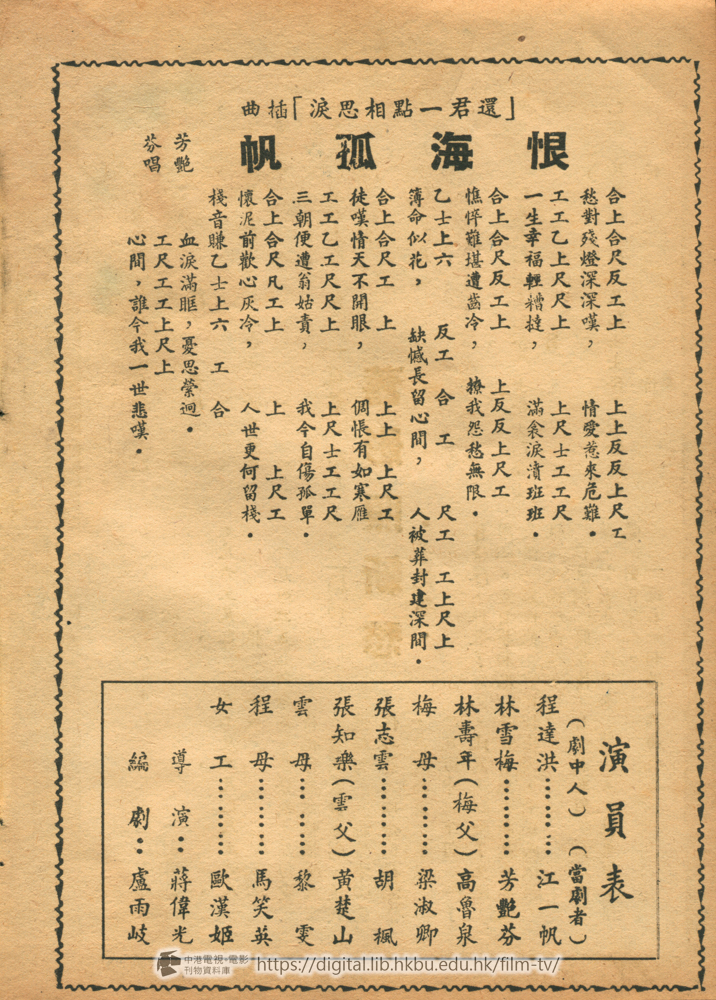 「還君一點相思淚」插曲
恨海孤帆
芳艷芬唱
合上合尺反工上　上上反反上尺工
愁對殘燈深深嘆，情愛惹來危難。
工工乙上尺尺上　上尺士工工尺
一生幸福輕糟撻，滿衾淚漬班班。
合上合尺反工上　上反反上尺工
憔悴難堪遭齒冷，撩我怨愁無限。
乙士上六　反工合工　尺工　工上尺上
薄命似花，缺憾長留心間，人被葬封建深間。
合上合尺工　上　上上　上尺工
徒嘆情天不開眼，倜悵有如寒雁
工工乙工尺尺上　上尺士工工尺
三朝便遭翁姑責，我今自傷孤單。
合上合尺凡工上　上　上尺工
懷泥前歡心灰冷，人世更何留棧。
棧音賺乙士上六　工　合
血淚滿眶，憂思縈迴。
工尺工工上尺上
心間，誰令我一世悲嘆。
演員表
（劇中人）（當劇者）
程達洪………江一帆
林雪梅………芳艷芬
林壽年（梅父）高魯泉
梅母………梁淑卿
張志雲………胡楓
張知樂（雲父）黃楚山
雲母………黎雯
程母………馬笑英
女工………歐漢姬
導演：蔣偉光
編劇：盧雨岐
中港電視・電影
刊物資料庫
https://digital.lib.hkbu.edu.hk/film-tv/